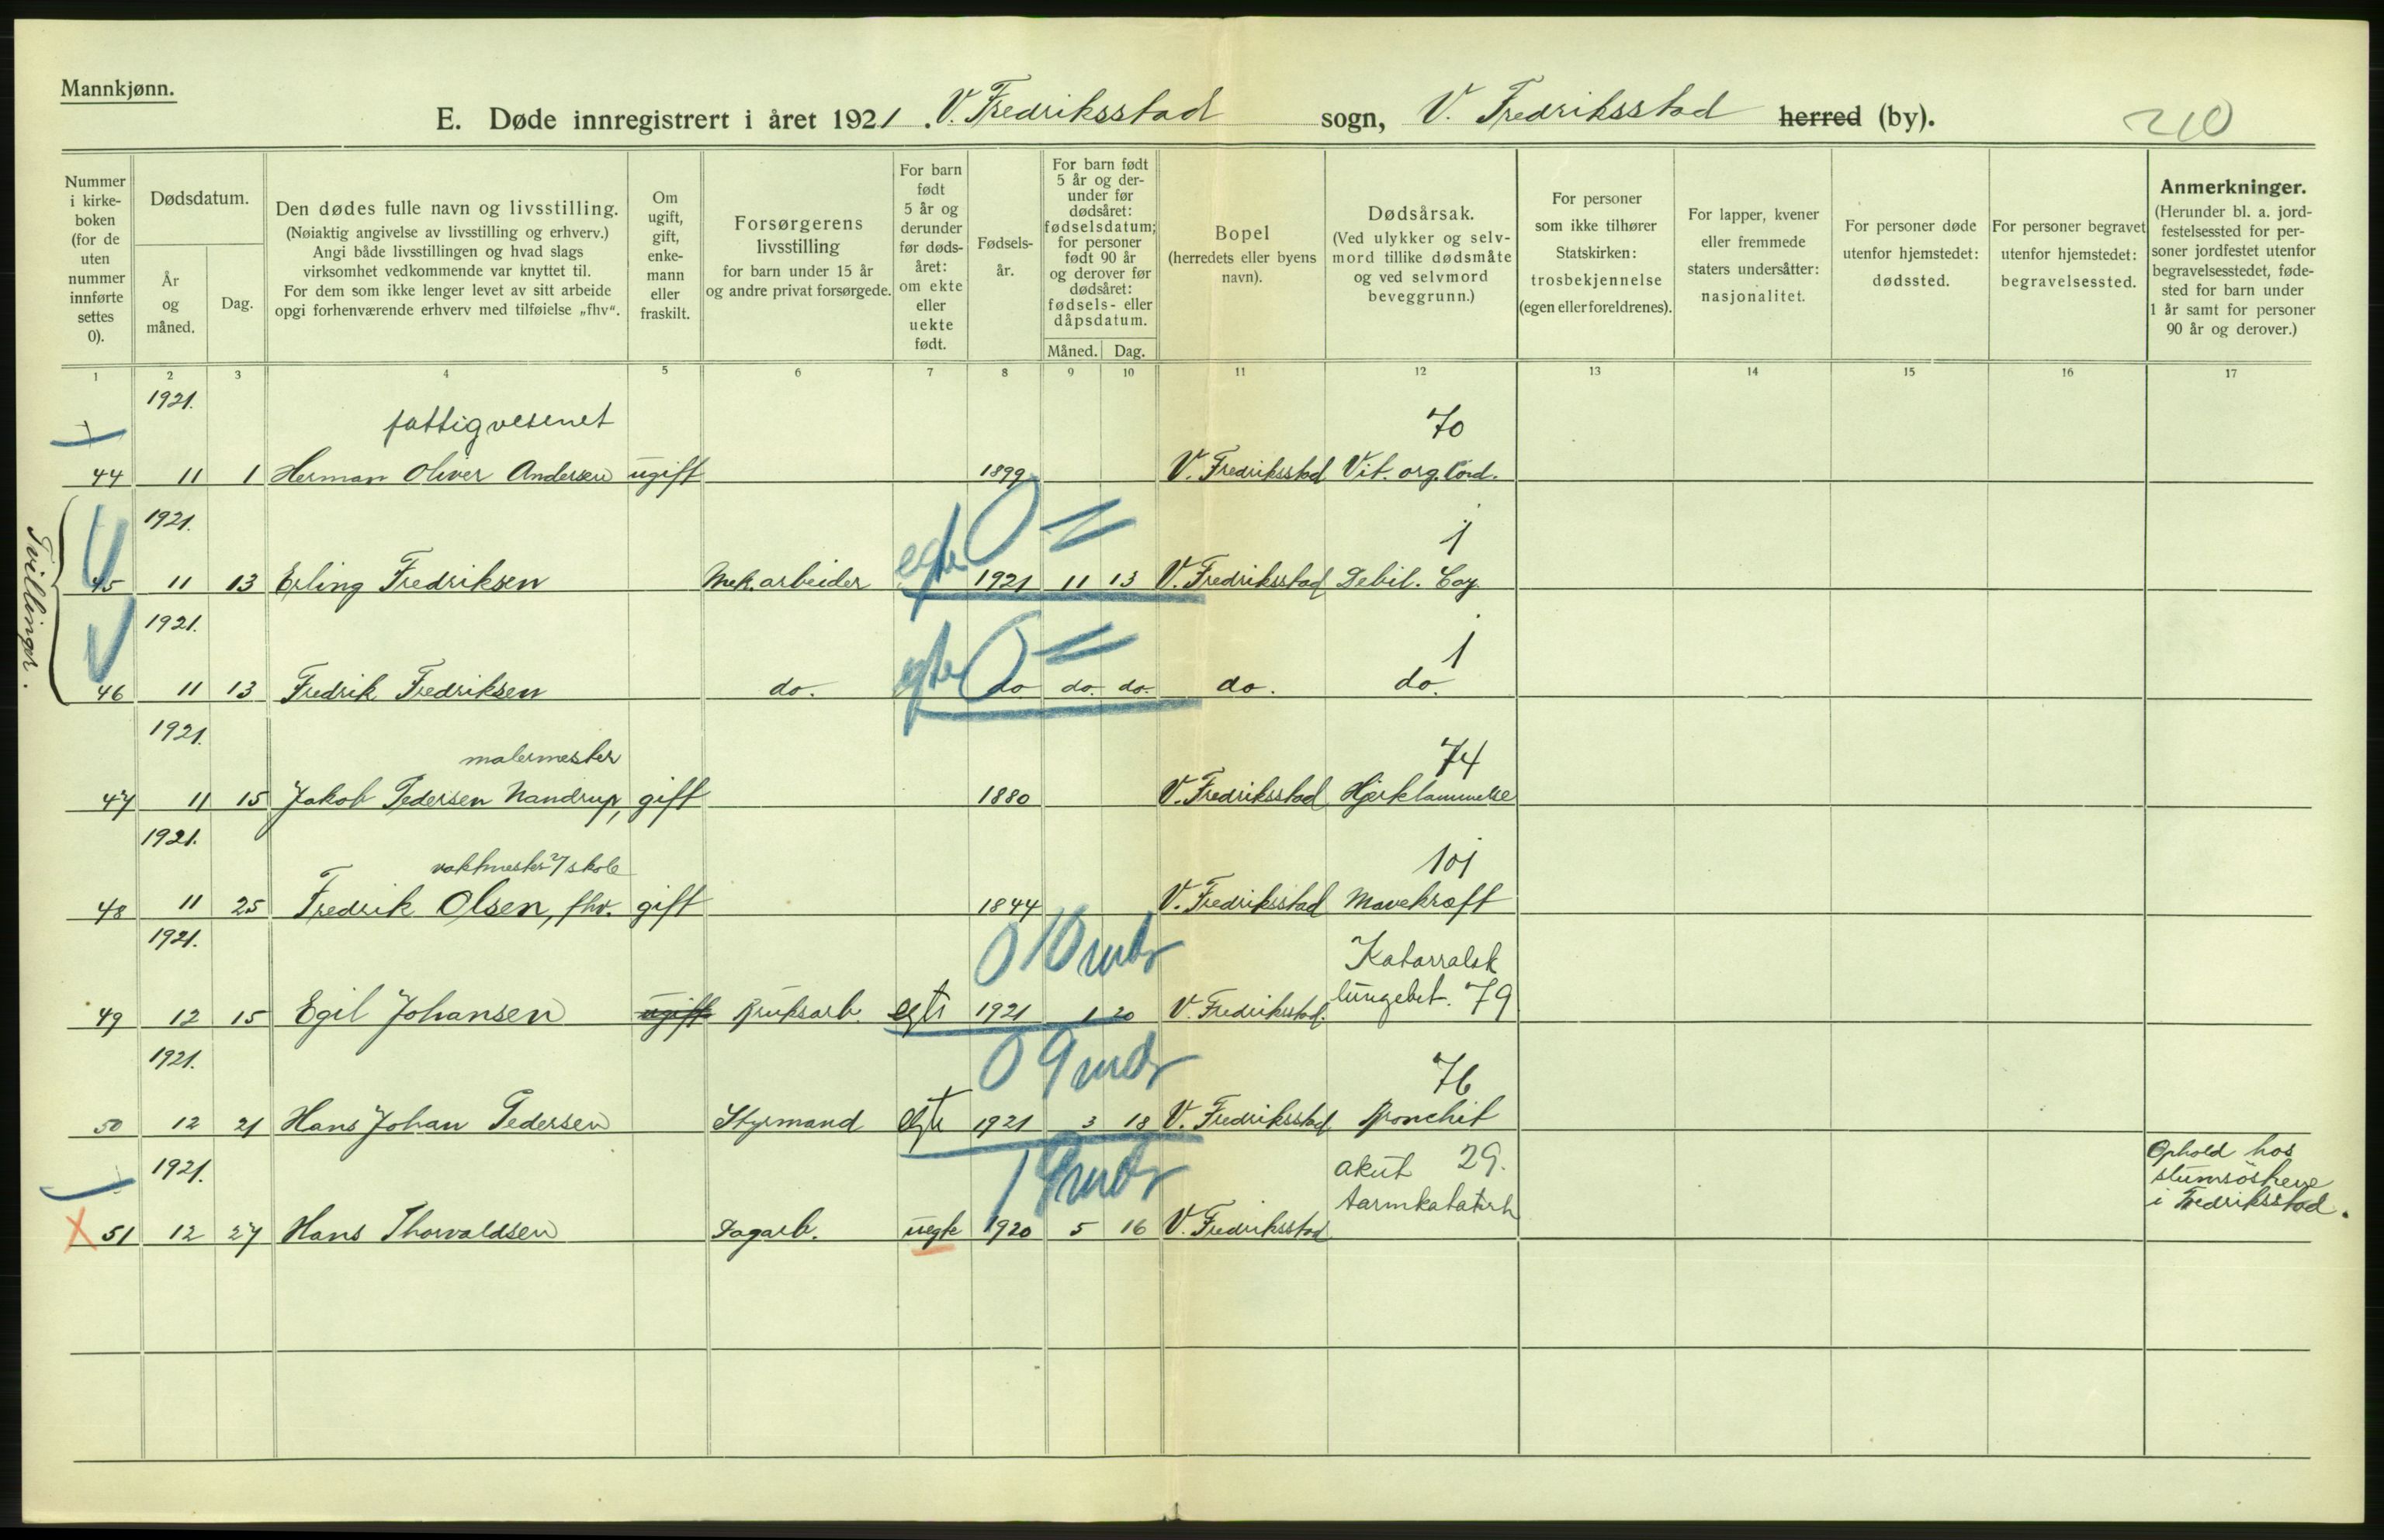 Mannkjønn.
E. Døde innregistrert i året 1921. V. Fredriksstad sogn, V. Fredriksstad herred (by).
210
Nummer i kirke-boken (for de uten nummer innførte settes 0).
Dødsdatum.
År og måned.
Dag.
Den dødes fulle navn og livsstilling.
(Nøiaktig angivelse av livsstilling og erhverv.)
Angi både livsstillingen og hvad slags
virksomhet vedkommende var knyttet til.
For dem som ikke lenger levet av sitt arbeide
opgi forhenværende erhverv med tilføielse „fhv“.
Om ugift, gift, enke-mann eller fraskilt.
Forsørgerens livsstilling
for barn under 15 år
og andre privat forsørgede.
For barn født 5 år og derunder før døds-året: om ekte eller uekte født.
Fødsels-år.
For barn født 5 år og der-under før dødsåret: fødselsdatum; for personer født 90 år og derover før dødsåret: fødsels- eller dåpsdatum.
Måned. Dag.
Bopel
(herredets eller byens navn).
Dødsårsak.
(Ved ulykker og selv-mord tillike dødsmåte og ved selvmord beveggrunn.)
For personer som ikke tilhører Statskirken: trosbekjennelse (egen eller foreldrenes).
For lapper, kvener eller fremmede staters undersåtter: nasjonalitet.
For personer døde utenfor hjemstedet: dødssted.
For personer begravet utenfor hjemstedet: begravelsessted.
Anmerkninger.
(Herunder bl. a. jord-festelsessted for per-soner jordfestet utenfor begravelsesstedet, føde-sted for barn under 1 år samt for personer 90 år og derover.)
1 2 3 4 5 6 7 8 9 10 11 12 13 14 15 16 17
1921.
fattigvesenet 70
44 11 1 Herman Oliver Andersen ugift 1899 V. Fredriksstad Vit. org. cord.
Tvillinger.
1921.
egte 0 1
45 11 13 Erling Fredriksen Mek. arbeider 1921 11 13 V. Fredriksstad Debil. Cog.
1921.
egte 0 1
46 11 13 Fredrik Fredriksen do. do do. do. do. do.
1921.
malermester 74
47 11 15 Jakob Pedersen Nandrup, gift 1880 V. Fredriksstad Hjerklammelse
1921.
vaktmester v/ skole 101
48 11 25 Fredrik Olsen, fhv. gift 1844 V. Fredriksstad Mavekræft
1921.
0 10 mdr Katarralsk
lungebet. 79
49 12 15 Egil Johansen ugift Bruksarb. egte 1921 1 20 V. Fredriksstad.
1921.
0 9 mdr 76
50 12 21 Hans Johan Pedersen Styrmand egte 1921 3 18 V. Fredriksstad Bronchit
1921.
akut 29.
tarmkatarrh
Ophold hos
slumsöstrene
i Fredriksstad.
X 51 12 27 Hans Thorvaldsen Dagarb. uegte 1920 5 16 V. Fredriksstad